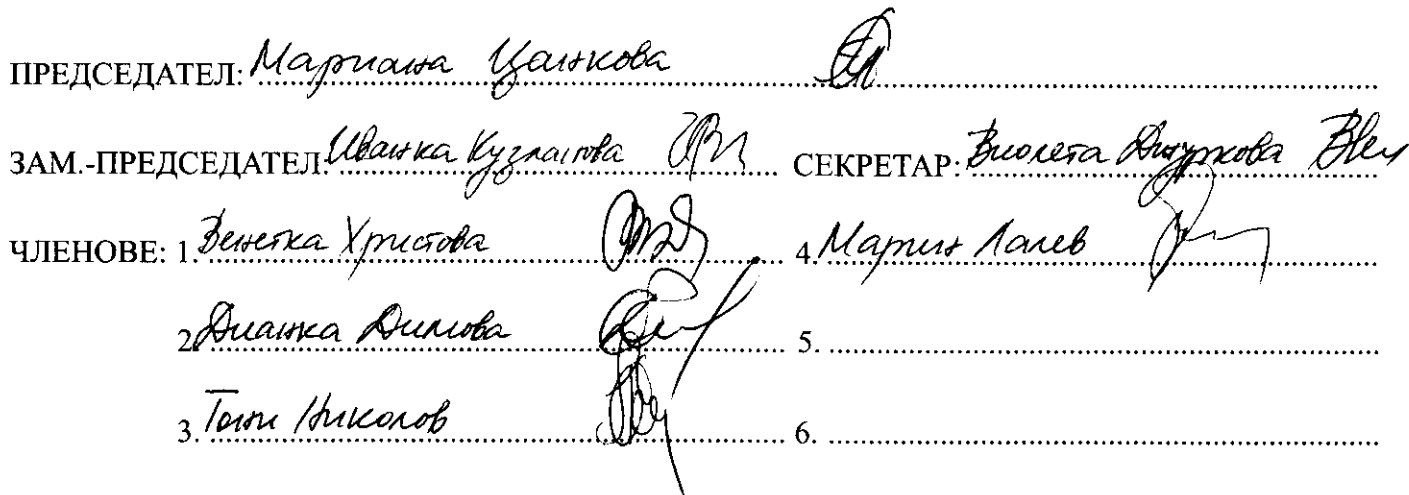 ПРЕДСЕДАТЕЛ: Мариана Цанкова
ЗАМ.-ПРЕДСЕДАТЕЛ: Иванка Кузманова СЕКРЕТАР: Виолета Джуркова
ЧЛЕНОВЕ: 1. Венетка Христова 4. Мартин Лалев
2. Дианка Димова 5.
3. Тони Николов 6.